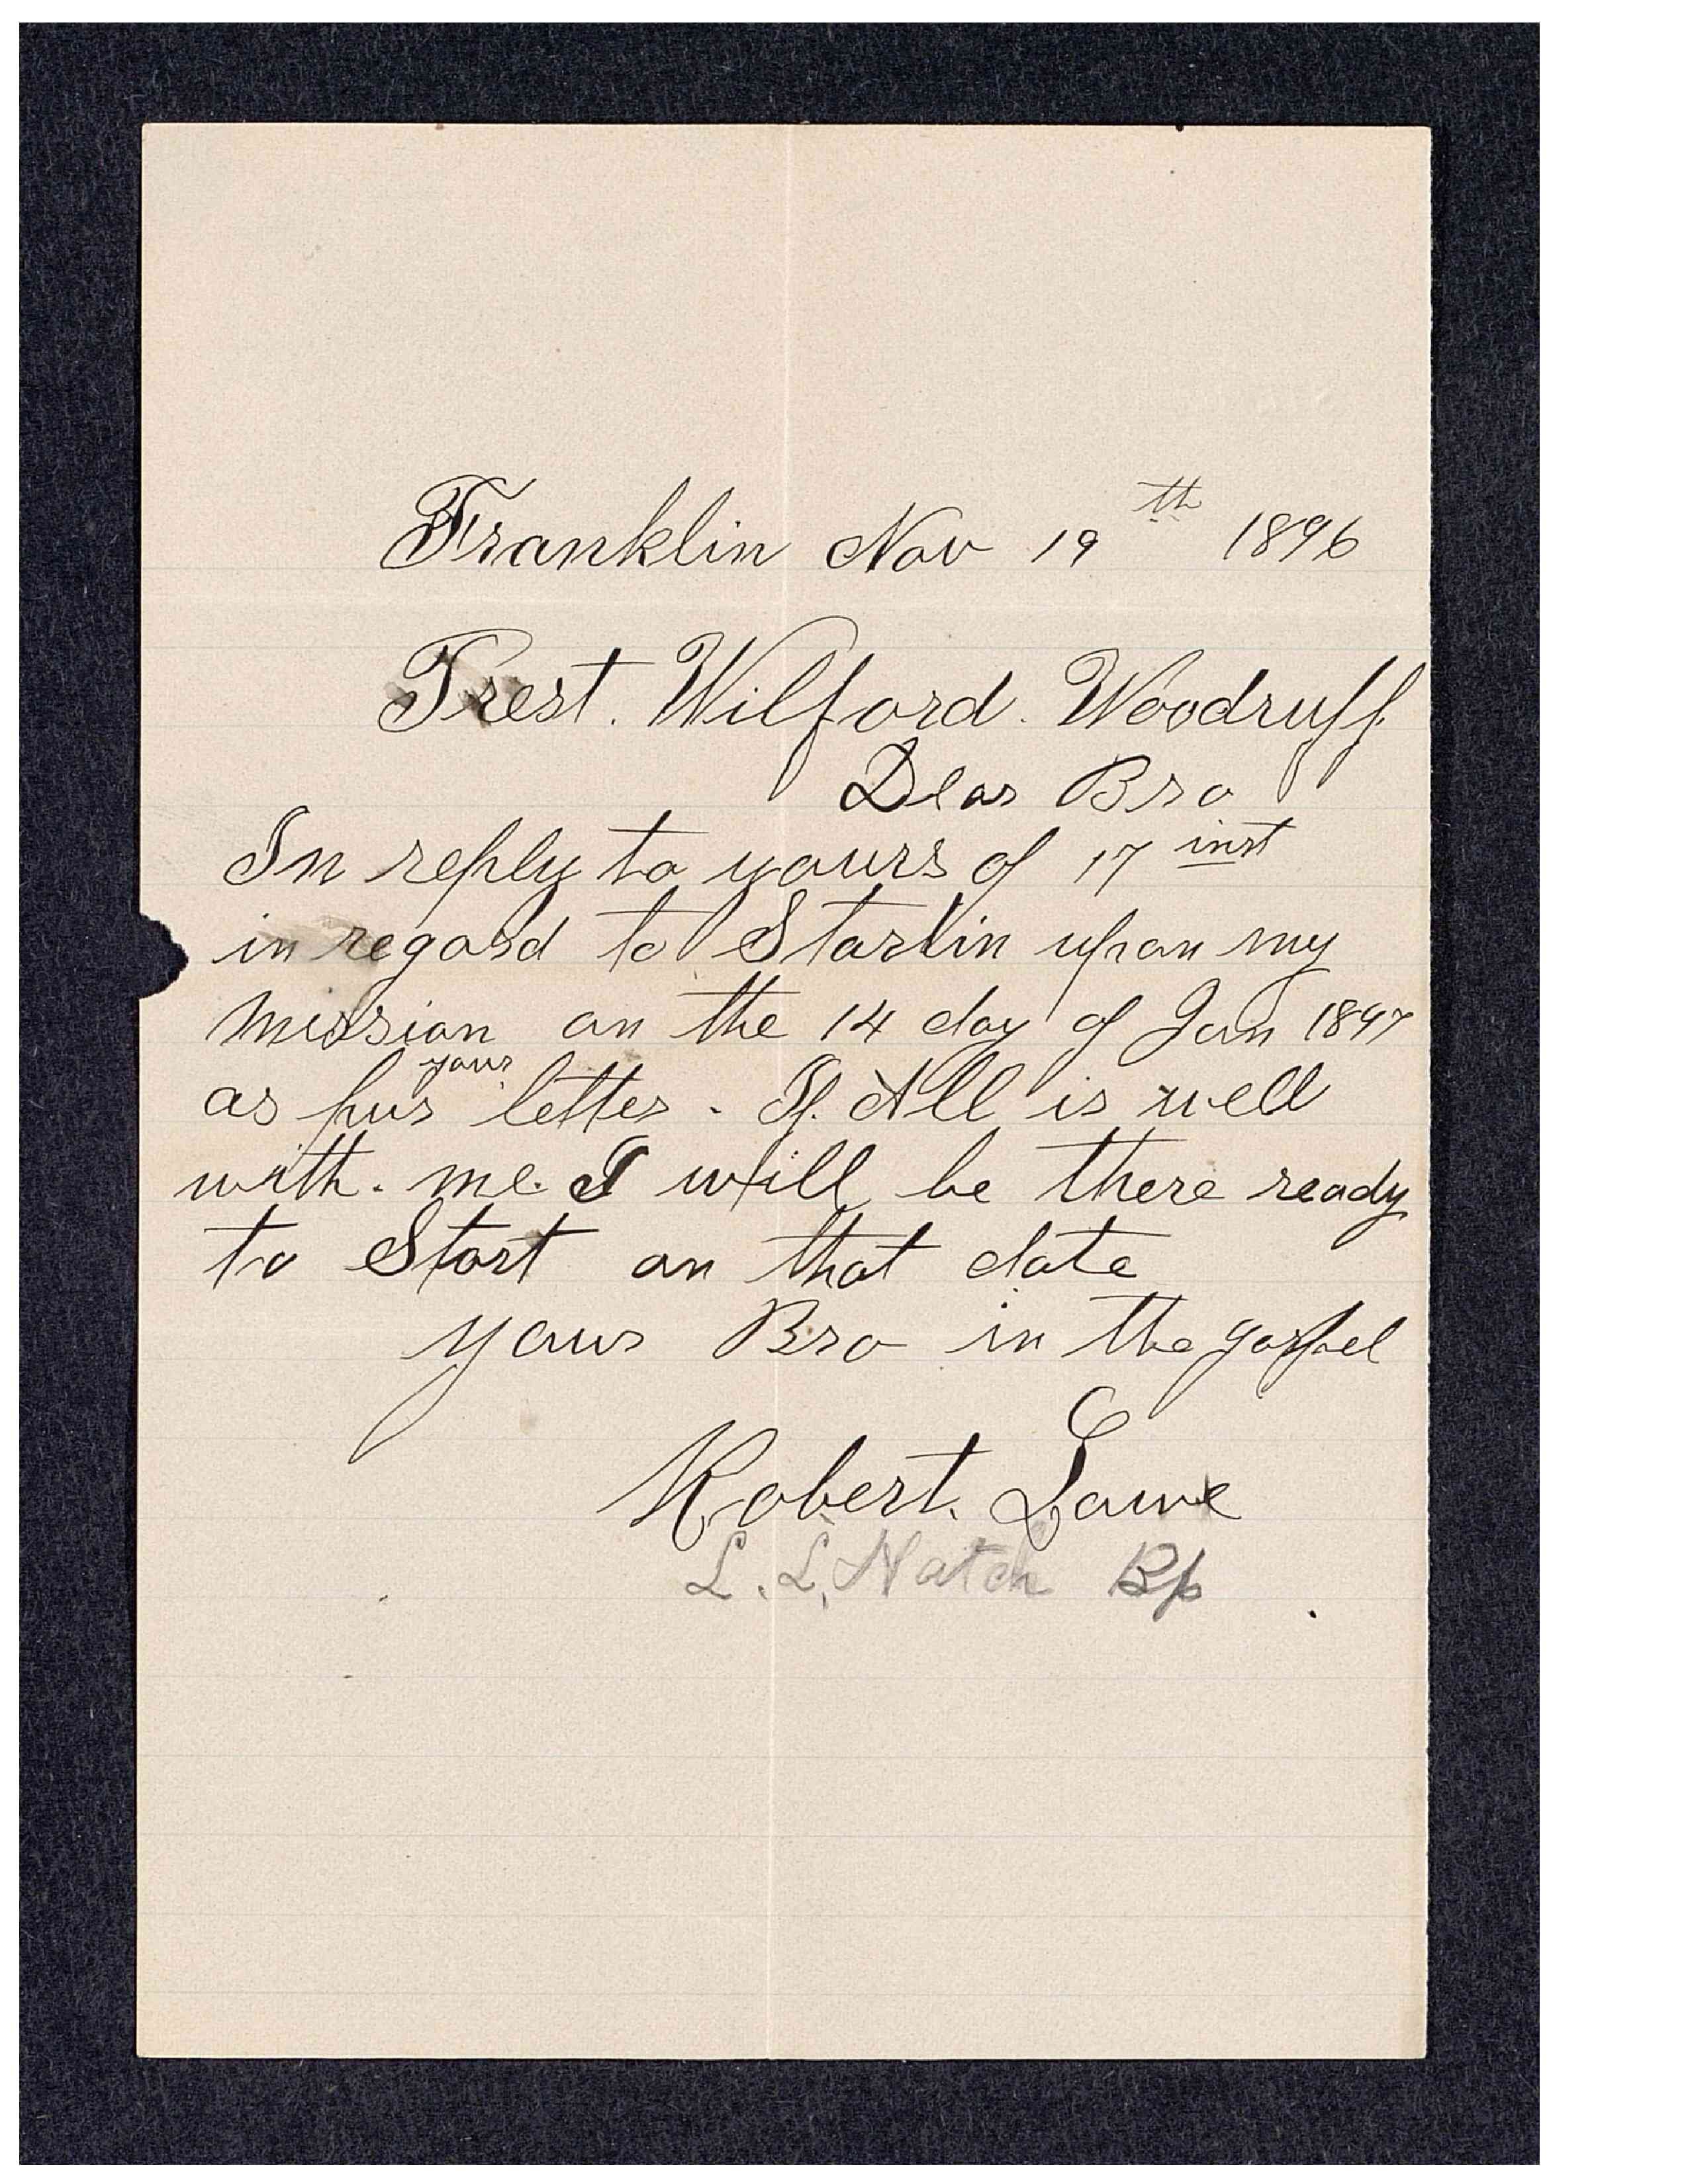 Franklin Nov 19th 1896
Prest. Wilford. Woodruff.
Dear Bro
In reply to yours of 17 inst
in regard to Startin upon my
mission on the 14 day of Jan 1897
as pur your letter. If. All is well
with. me. I will be there ready
to Start on that date
your Bro in the gospel
Robert. Lowe
L. L. Hatch Bp